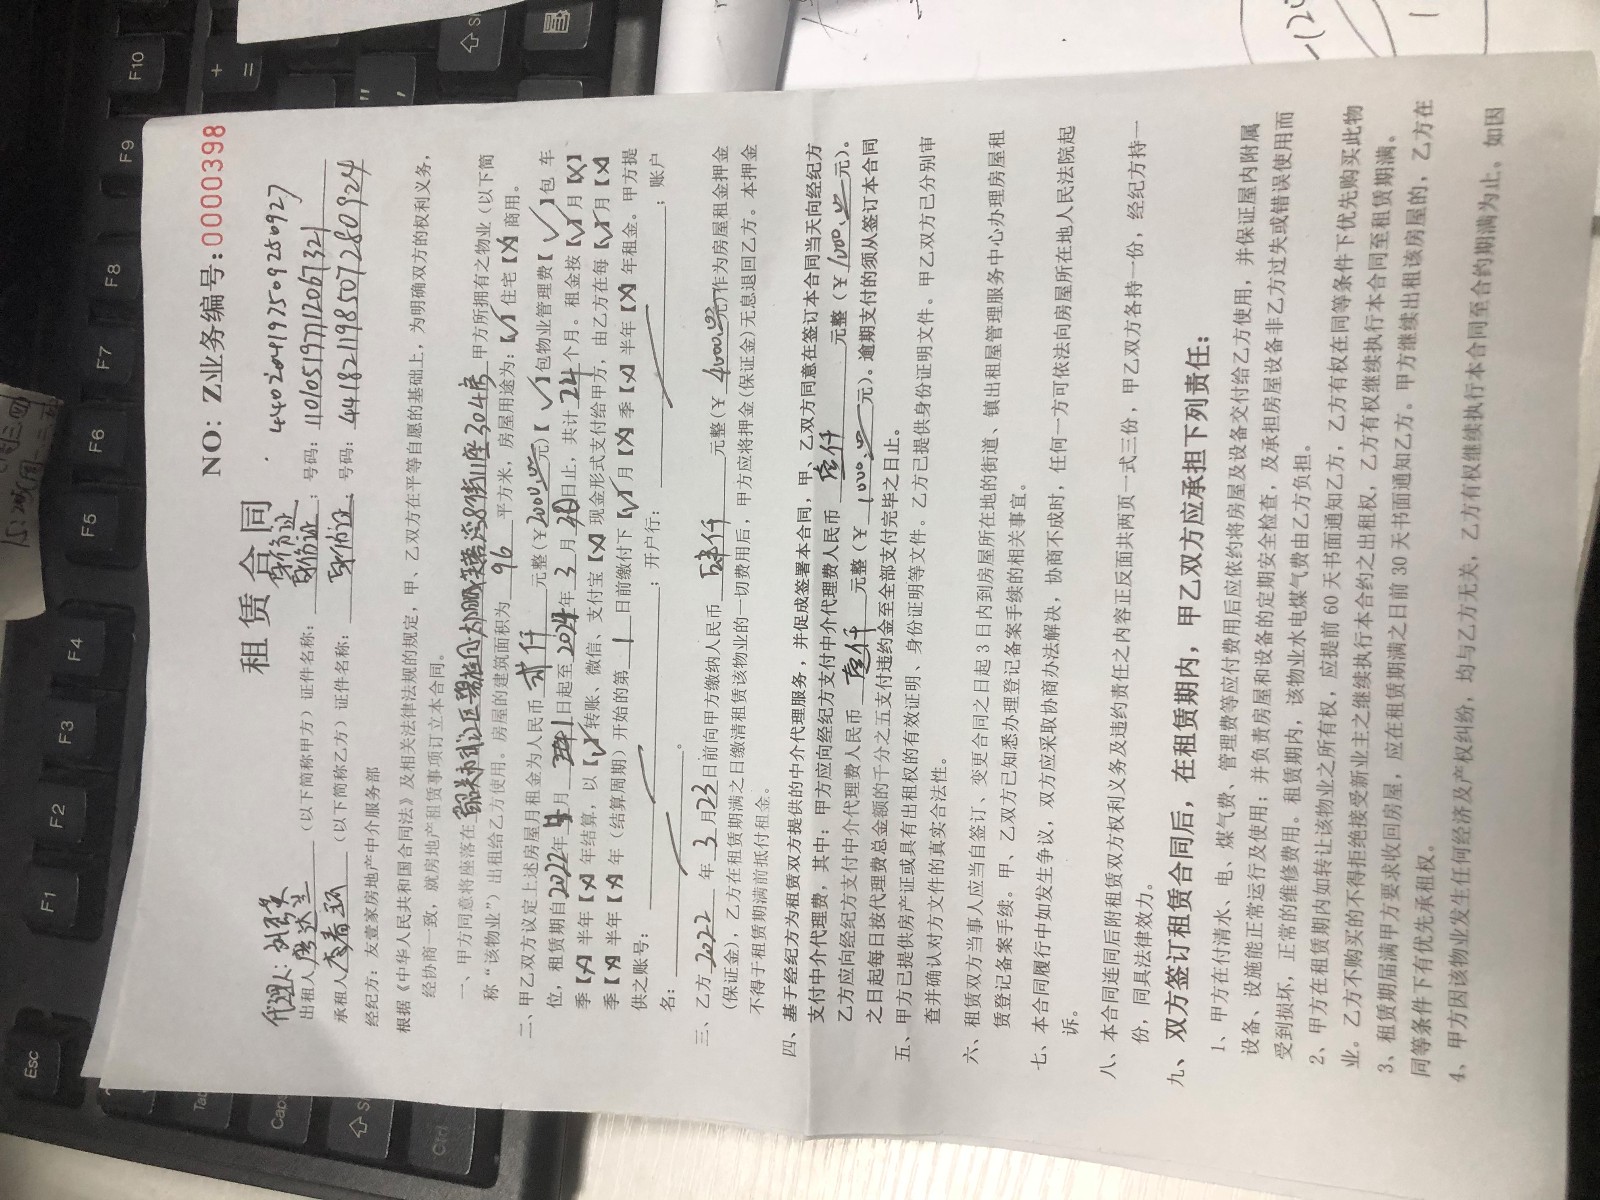 NO: Z业务编号:0000398
租赁合同
代理人:
出租人 （以下简称甲方）证件名称: 身份证 ; 号码: 110105197711206732
承租人 （以下简称乙方）证件名称: 身份证 ; 号码: 441821198507280924
经纪方：友壹家房地产中介服务部
根据《中华人民共和国合同法》及相关法律法规的规定，甲、乙双方在平等自愿的基础上，为明确双方的权利义务，
经协商一致，就房地产租赁事项订立本合同。
一、甲方同意将座落在 304房 甲方所拥有之物业（以下简
称“该物业”）出租给乙方使用。房屋的建筑面积为 96 平方米，房屋用途为:【√】住宅【X】商用。
二、甲乙双方议定上述房屋月租金为人民币 贰仟 元整（￥2000.00元）【√】包物业管理费【√】包车
位，租赁期自2022年 月 日起至2024年3月 日止，共计24个月。租金按【√】月【X】
季【X】半年【X】年结算，以【√】转账、微信、支付宝【X】现金形式支付给甲方，由乙方在每【√】月【X】
季【X】半年【X】年（结算周期）开始的第 1 日前缴付下【√】月【X】季【X】半年【X】年租金。甲方提
供之账号: ; 开户行: ; 账户
名: 。
三、乙方2022年3月23日前向甲方缴纳人民币 肆仟 元整（￥4000.00元）作为房屋租金押金
（保证金），乙方在租赁期满之日缴清租赁该物业的一切费用后，甲方应将押金(保证金)无息退回乙方。本押金
不得于租赁期满前抵付租金。
四、基于经纪方为租赁双方提供的中介代理服务，并促成签署本合同，甲、乙双方同意在签订本合同当天向经纪方
支付中介代理费，其中：甲方应向经纪方支付中介代理费人民币 壹仟 元整（￥1000.00元）。
乙方应向经纪方支付中介代理费人民币 壹仟 元整（￥1000.00元）。逾期支付的须从签订本合同
之日起每日按代理费总金额的千分之五支付违约金至全部支付完毕之日止。
五、甲方已提供房产证或具有出租权的有效证明、身份证明等文件。乙方已提供身份证明文件。甲乙双方已分别审
查并确认对方文件的真实合法性。
六、租赁双方当事人应当自签订、变更合同之日起3日内到房屋所在地的街道、镇出租屋管理服务中心办理房屋租
赁登记备案手续。甲、乙双方已知悉办理登记备案手续的相关事宜。
七、本合同履行中如发生争议，双方应采取协商办法解决，协商不成时，任何一方可依法向房屋所在地人民法院起
诉。
八、本合同连同后附租赁双方权利义务及违约责任之内容正反面共两页一式三份，甲乙双方各持一份，经纪方持一
份，同具法律效力。
九、双方签订租赁合同后，在租赁期内，甲乙双方应承担下列责任:
1、甲方在付清水、电、煤气费、管理费等应付费用后应依约将房屋及设备交付给乙方使用，并保证屋内附属
设备、设施能正常运行及使用；并负责房屋和设备的定期安全检查，及承担房屋设备非乙方过失或错误使用而
受到损坏，正常的维修费用。租赁期内，该物业水电煤气费由乙方负担。
2、甲方在租赁期内如转让该物业之所有权，应提前60天书面通知乙方，乙方有权在同等条件下优先购买此物
业。乙方不购买的不得拒绝接受新业主之继续执行本合约之出租权，乙方有权继续执行本合同至租赁期满。
3、租赁期届满甲方要求收回房屋，应在租赁期满之日前30天书面通知乙方。甲方继续出租该房屋的，乙方在
同等条件下有优先承租权。
4、甲方因该物业发生任何经济及产权纠纷，均与乙方无关，乙方有权继续执行本合同至合约期满为止，如因
Esc
F1
F2
F3
F4
F5
F6
F7
F8
F9
F10